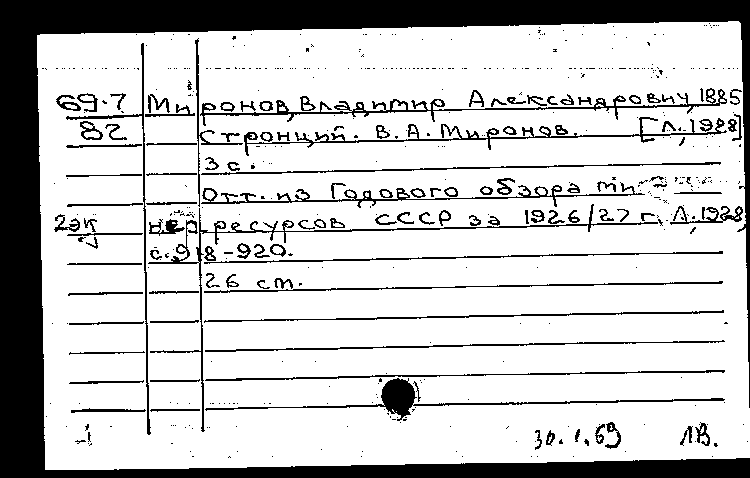 69.7 Миронов, Владимир Александрович, 1885
82 Стронций. В.А. Миронов. [Л., 1928]
3 с.
Отт. из Годового обзора ми
2эк нер. ресурсов СССР за 1926/27 г., Л., 1928,
с. 918-920.
26 см.
30.1.69 ЛВ.